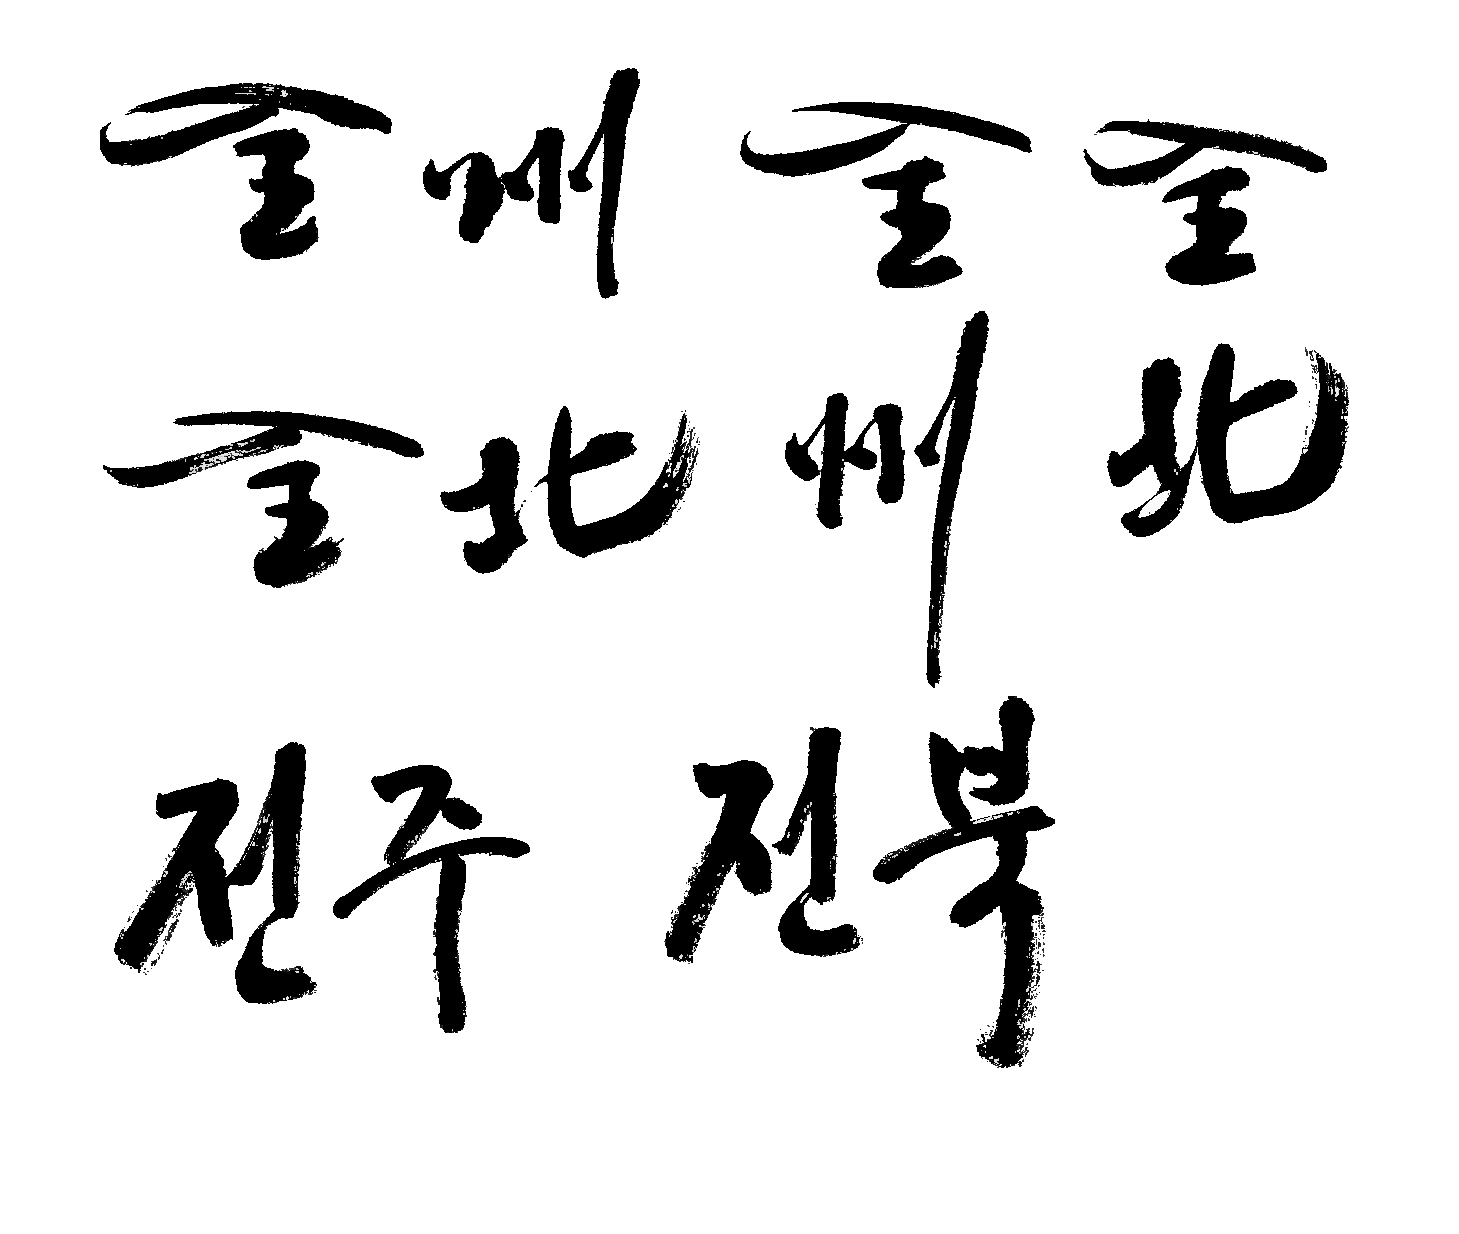 全州 全 全
全北 州 北
전주 전북